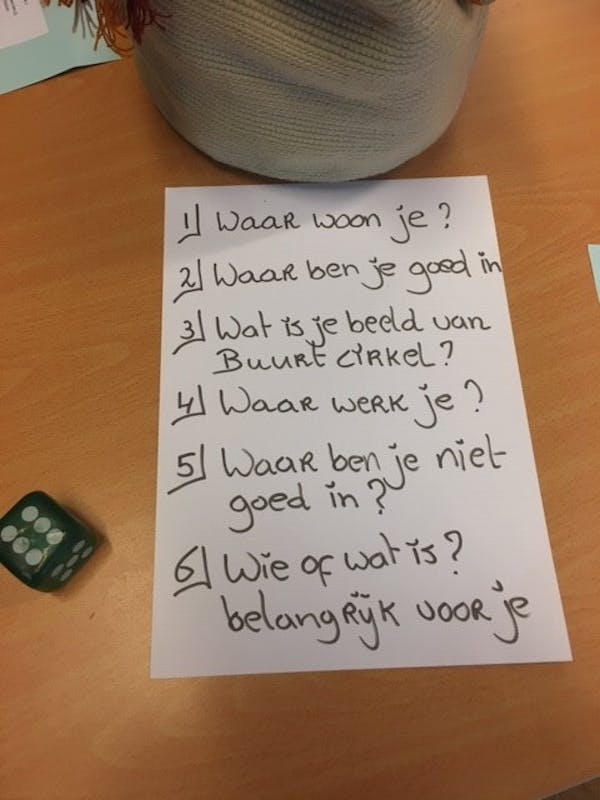 1 Waar woon je?
2 Waar ben je goed in
3 Wat is je beeld van
Buurt cirkel?
4 Waar werk je?
5 Waar ben je niet
goed in?
6 Wie of wat is?
belangrijk voor je